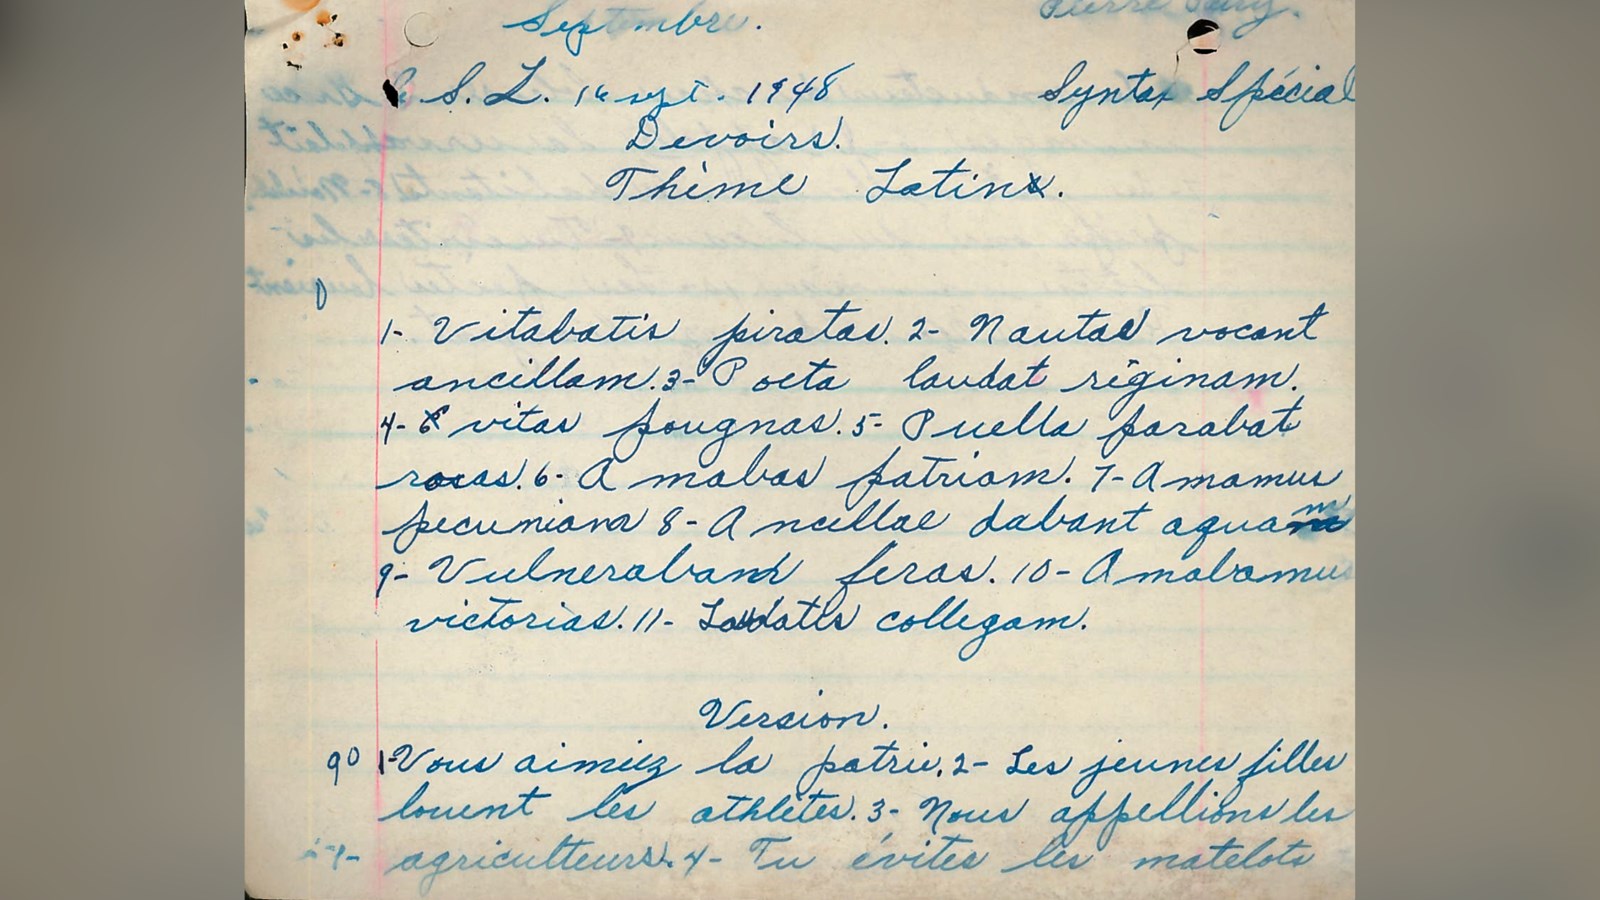 Septembre.
S. L. 16 sept. 1948 Syntax Spécial
Devoirs.
Thème Latin.
1- Vitabatis piratas. 2- Nautae vocant
ancillam. 3- Poeta laudat réginam.
4- Evitas pougnas. 5- Puella parabat
rosas. 6- Amabas patriam. 7- Amamus
pecuniam 8- Ancillae dabant aquam
9- Vulneraband feras. 10- Amabamus
victorias. 11- Laudatis collegam.
Version.
9° 1- Vous aimiez la patrie. 2- Les jeunes filles
louent les athlètes. 3- Nous appellions les
agriculteurs. 4- Tu évites les matelots